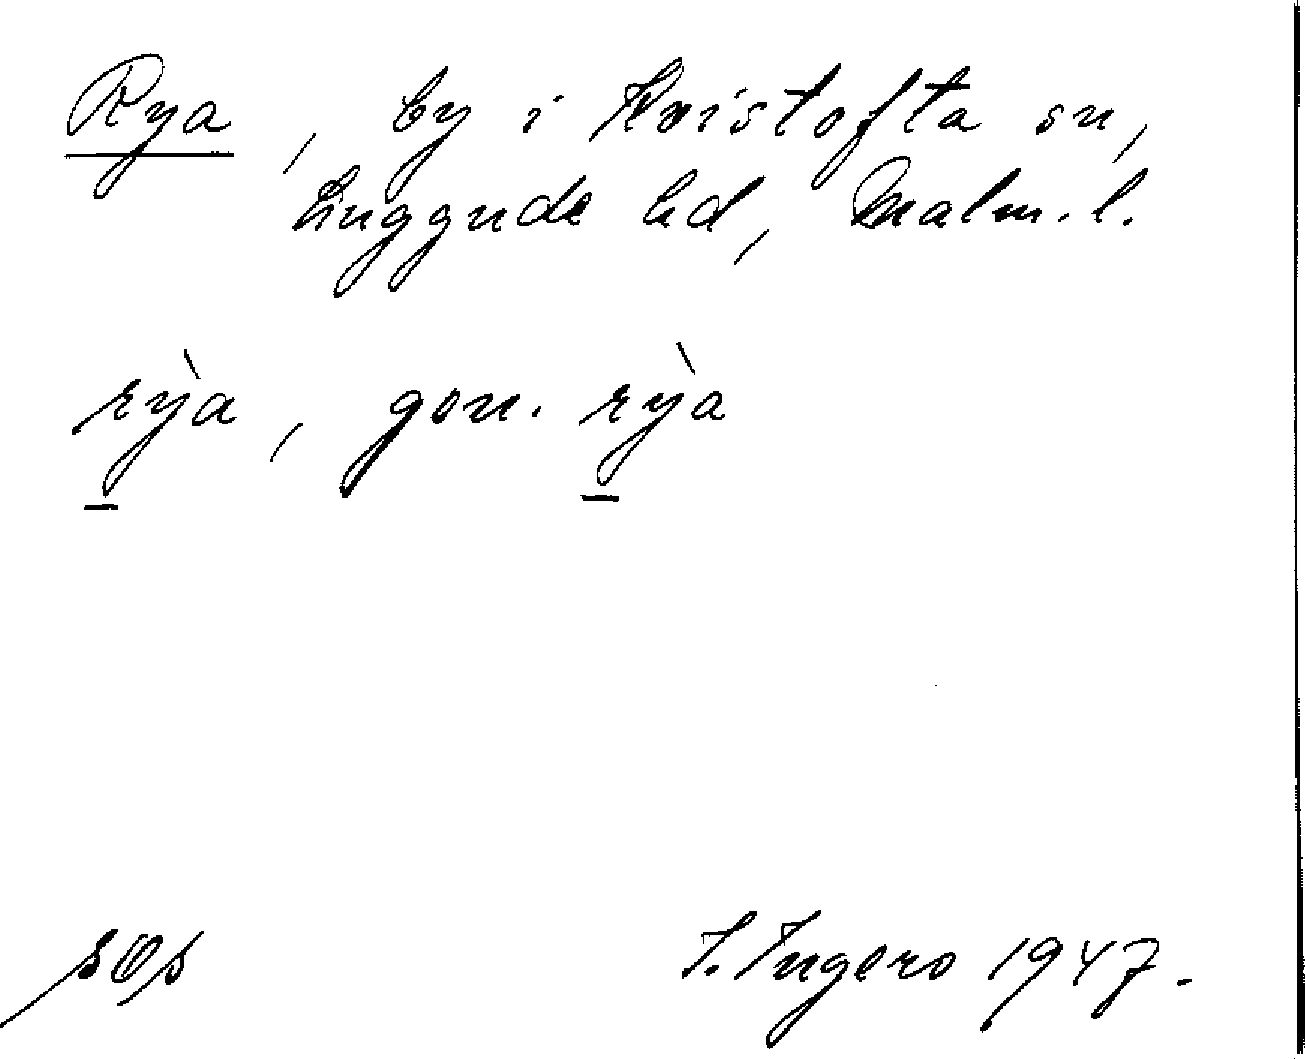 Rya, by i Kvistofta sn,
Luggude hd, Malm. l.
rỳ̖a, gen. rỳ̖a
sOs I. Ingers 1947.